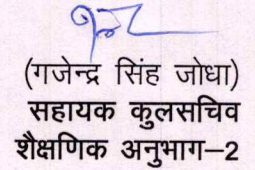 (गजेन्द्र सिंह जोधा)
सहायक कुलसचिव
शैक्षणिक अनुभाग–2